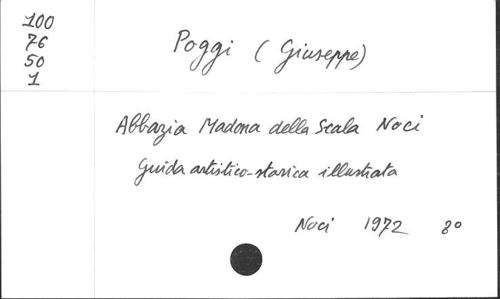 100
76
50
1
Poggi (Giuseppe)
Abbazia Madona della Scala Noci
Guida artistico-storica illustrata
Noci 1972 8°